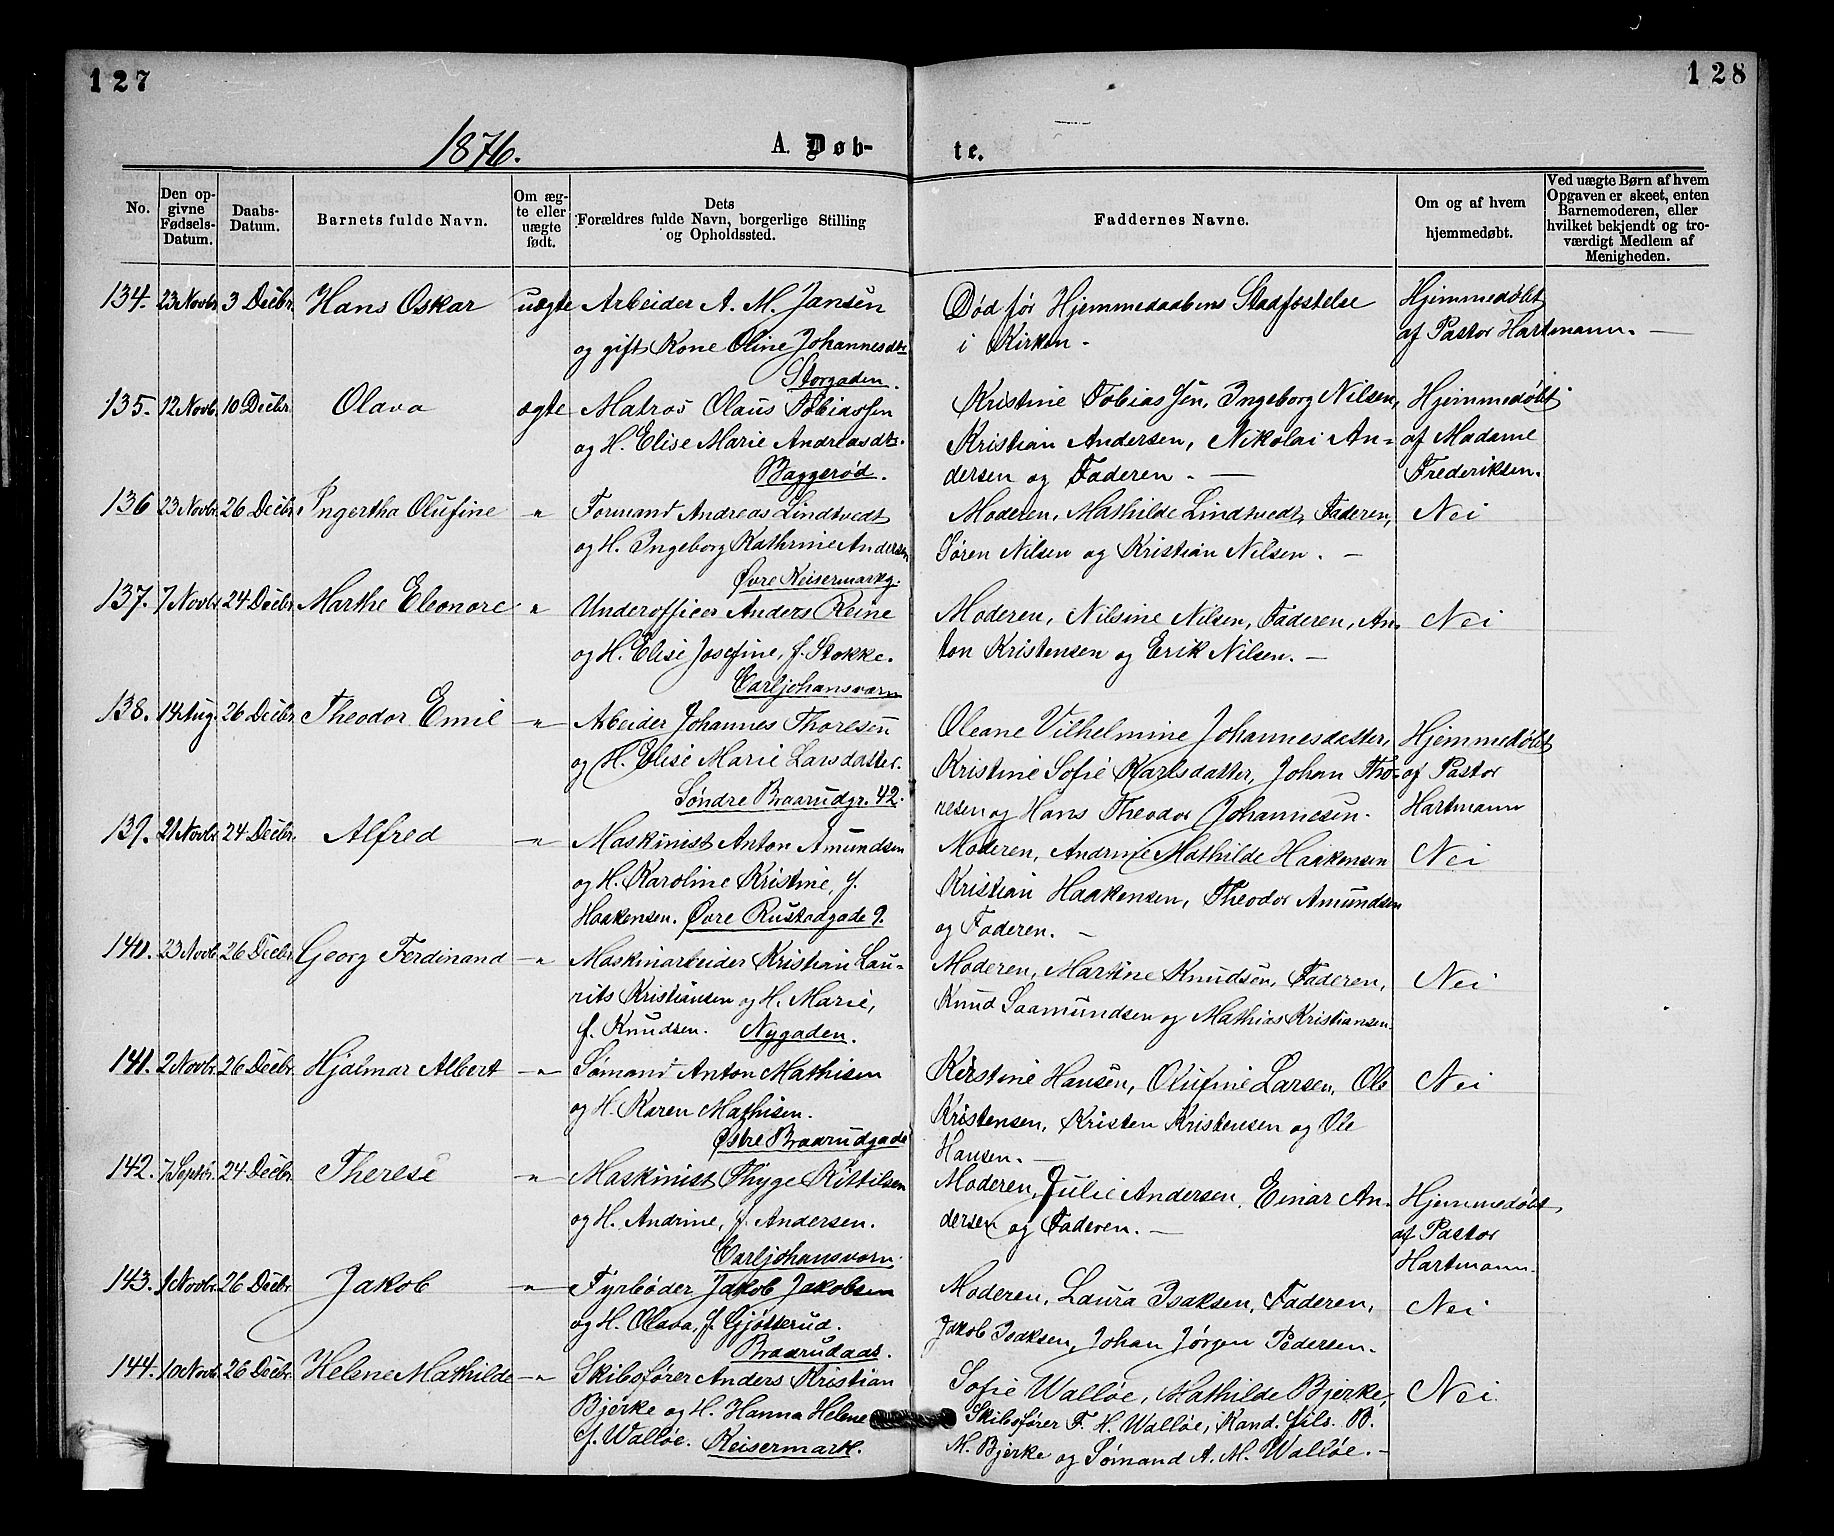 127
128
1876.
A. Døb-
te.
No.
Den op-
givne
Fødsels-
Datum.
Daabs-
Datum.
Barnets fulde Navn.
Om æg-
te eller
uægte
født.
Dets
Forældres fulde Navn, borgerlige Stilling
og Opholdssted.
Faddernes Navne.
Om og af hvem
hjemmedøbt.
Ved uægte Børn af hvem
Opgaven er skeet, enten
Barnemoderen, eller
hvilket bekjendt og tro-
værdigt Medlem af
Menigheden.
134. 23 Novbr. 3 Decbr. Hans Oskar uægte Arbeider A. M. Jansen
og gift Kone Oline Johannesdtr
Storgaden.
Død før Hjemmedaabens Stadfæstelse
i Kirken.
Hjemmedøbt
af Pastor Hartmann. —
135. 12 Novb. 10 Decbr. Olava ægte Matros Olaus Tobiassen
og H. Elise Marie Andreasdtr.
Baggerød.
Kristine Tobiassen, Ingeborg Nilsen,
Kristian Andersen, Nikolai An-
dersen og Faderen. —
Hjemmedøbt
af Madame
Frederiksen.
136 23 Novbr. 26 Decbr. Ingertha Olufine " Formand Andreas Lindtvedt
og H. Ingeborg Kathrine Andersen
Øvre Keisermarkg.
Moderen, Mathilde Lindtvedt, Faderen,
Søren Nilsen og Kristian Nilsen. —
Nei
137. 7 Novbr. 24 Decbr. Marthe Eleonore " Underofficer Anders Reine
og H. Elise Josefine, f. Stokke.
Carljohansværn
Moderen, Nilsine Nilsen, Faderen, An-
ton Kristensen og Erik Nilsen. —
Nei
138. 14 Aug. 26 Decbr. Theodor Emil -"- Arbeider Johannes Thoresen
og H. Elise Marie Larsdatter.
Søndre Braarudgr. 42.
Oleane Vilhelmine Johannesdatter,
Kristine Sofie Karlsdatter, Johan Tho-
resen og Hans Theodor Johannesen.
Hjemmedøbt
af Pastor
Hartmann
139. 21 Novbr. 24 Decbr. Alfred -"- Maskinist Anton Amundsen
og H. Karoline Kristine, f.
Haakensen. Øvre Rustadgade 9.
Moderen, Andrine Mathilde Haakensen
Kristian Haakensen, Theodor Amundsen
og Faderen. —
Nei
140. 23 Novb. 26 Decbr. Georg Ferdinand -"- Maskinarbeider Kristian Lau-
rits Kristiansen og H. Marie,
f. Knudsen. Nygaden.
Moderen, Martine Knudsen, Faderen,
Knud Saamundsen og Mathias Kristiansen.
Nei
141. 2 Novbr. 26 Decbr. Hjalmar Albert -"- Sømand Anton Mathisen
og H. Karen Mathisen.
Østre Braarudgade
Kerstine Hansen, Olufine Larsen, Ole
Kristensen, Kristen Kristensen og Ole
Hansen. —
Nei
142. 7 Septbr. 24 Decbr. Therese -"- Maskinist Thyge Kittilsen
og H. Andrine, f. Andersen.
Carljohansværn.
Moderen, Julie Andersen, Einar An-
dersen og Faderen. —
Hjemmedøbt
af Pastor
Hartmann.
143. 1 Novbr. 26 Decbr. Jakob -"- Fyrbøder Jakob Jakobsen
og H. Olava, f. Gjøtterud.
Braarudaas.
Moderen, Laura Isaksen, Faderen,
Jakob Isaksen, Johan Jørgen Pedersen.
Nei
144. 10 Novb. 26 Decbr. Helene Mathilde -"- Skibsfører Anders Kristian
Bjerke og H. Hanna Helene
f. Walløe. Keisermark.
Sofie Walløe, Mathilde Bjerke,
Skibsfører F. H. Walløe, Kand. fils. B.
M. Bjerke og Sømand A. M. Walløe. —
Nei